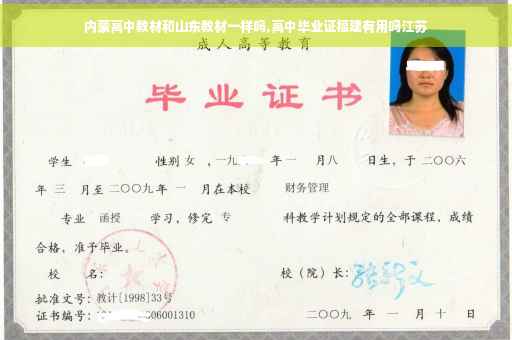 内蒙高中教材和山东教材一样吗,高中毕业证福建有用吗江苏
成人高等教育
毕业证书
学生 性别 女 ,一九 年 一 月 八 日生，于 二〇〇六
年 三 月至 二〇〇九 年 一 月在本校 财务管理
专业 函授 学习，修完 专 科教学计划规定的全部课程，成绩
合格，准予毕业。
校 名： 校（院）长：
批准文号：教计[1998]33号
证书编号： 06001310 二〇〇九 年 一 月 十 日